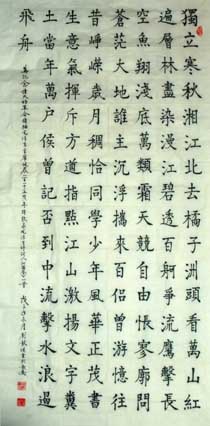 獨立寒秋湘江北去橘子洲頭看萬山紅
遍層林盡染漫江碧透百舸爭流鷹擊長
空魚翔淺底萬類霜天競自由悵寥廓問
蒼茫大地誰主沉浮攜來百侶曾游憶往
昔崢嶸歲月稠恰同學少年風華正茂書
生意氣揮斥方遒指點江山激揚文字糞
土當年萬戶侯曾記否到中流擊水浪遏
飛舟